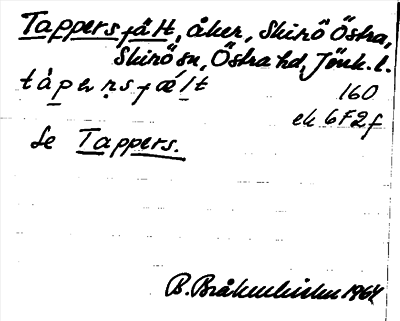 Tappersfält, åker, Skirö Östra,
Skirö sn, Östra hd, Jönk. l.
tápẹṇsfæ̀lt 160
ek 6F2f
Se Tappers.
B. Bråkenhielm 1964